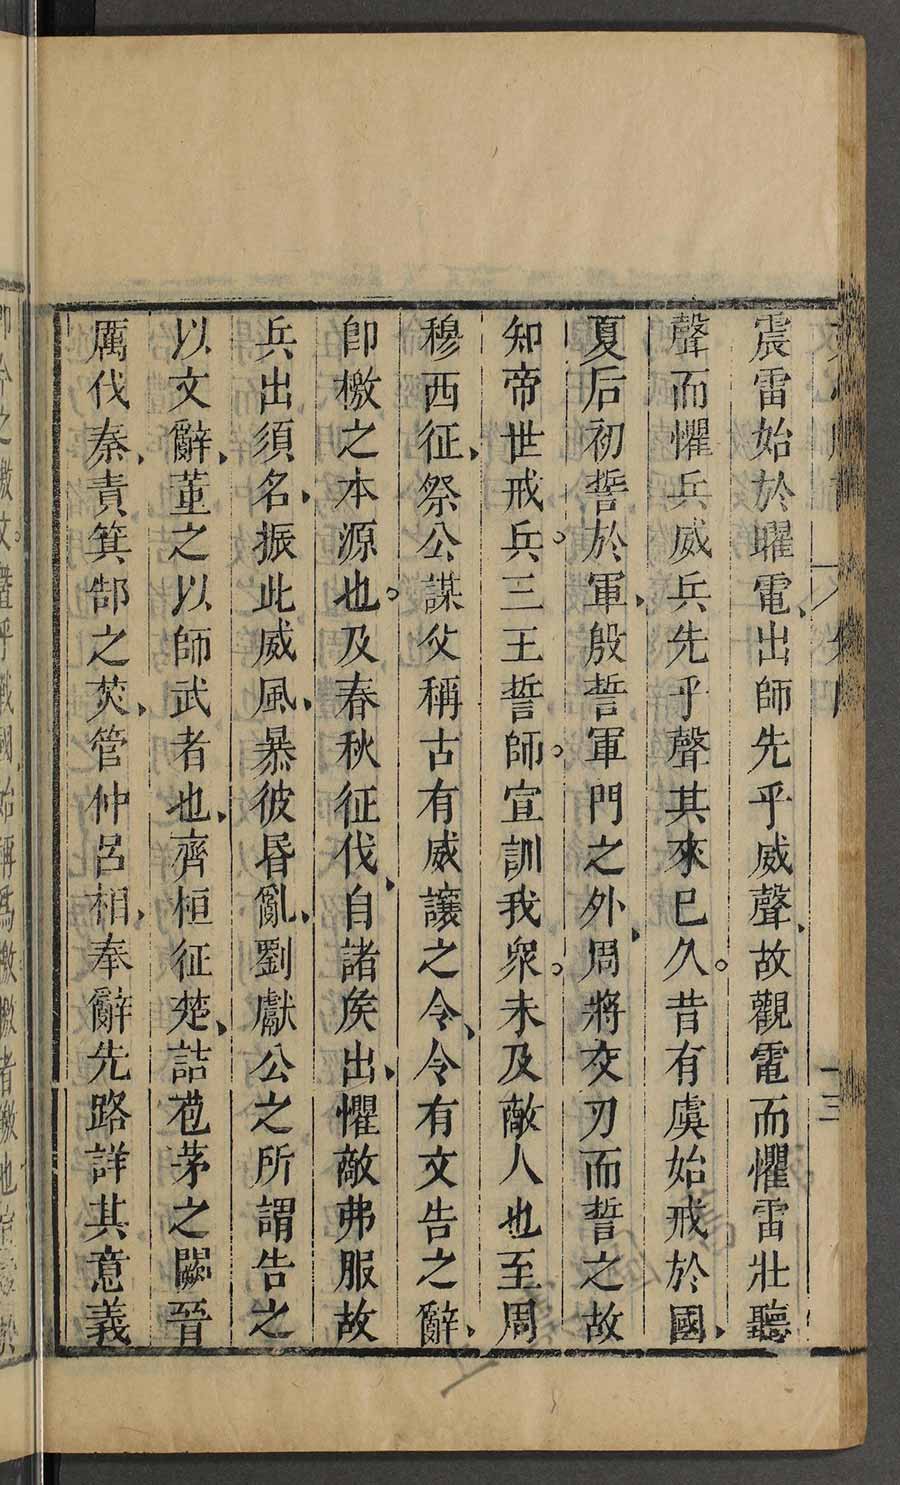 震雷始於曜電、出師先乎威聲、故觀電而懼雷壯聽
聲而懼兵威兵先乎聲其來已久。昔有虞始戒於國、
夏后初誓於軍、殷誓軍門之外、周將交刃而誓之故
知帝世戒兵。三王誓師。宣訓我衆。未及敵人也至周
穆西征、祭公謀父稱古有威讓之令、令有文告之辭、
卽檄之本源也。及春秋征伐、自諸矦出、懼敵弗服故
兵出須名、振此威風、暴彼昏亂、劉獻公之所謂告之
以文辭、董之以師武者也、齊桓征楚、詰苞茅之闕晉
厲伐秦、責箕郜之焚、管仲呂相、奉辭先路詳其意義